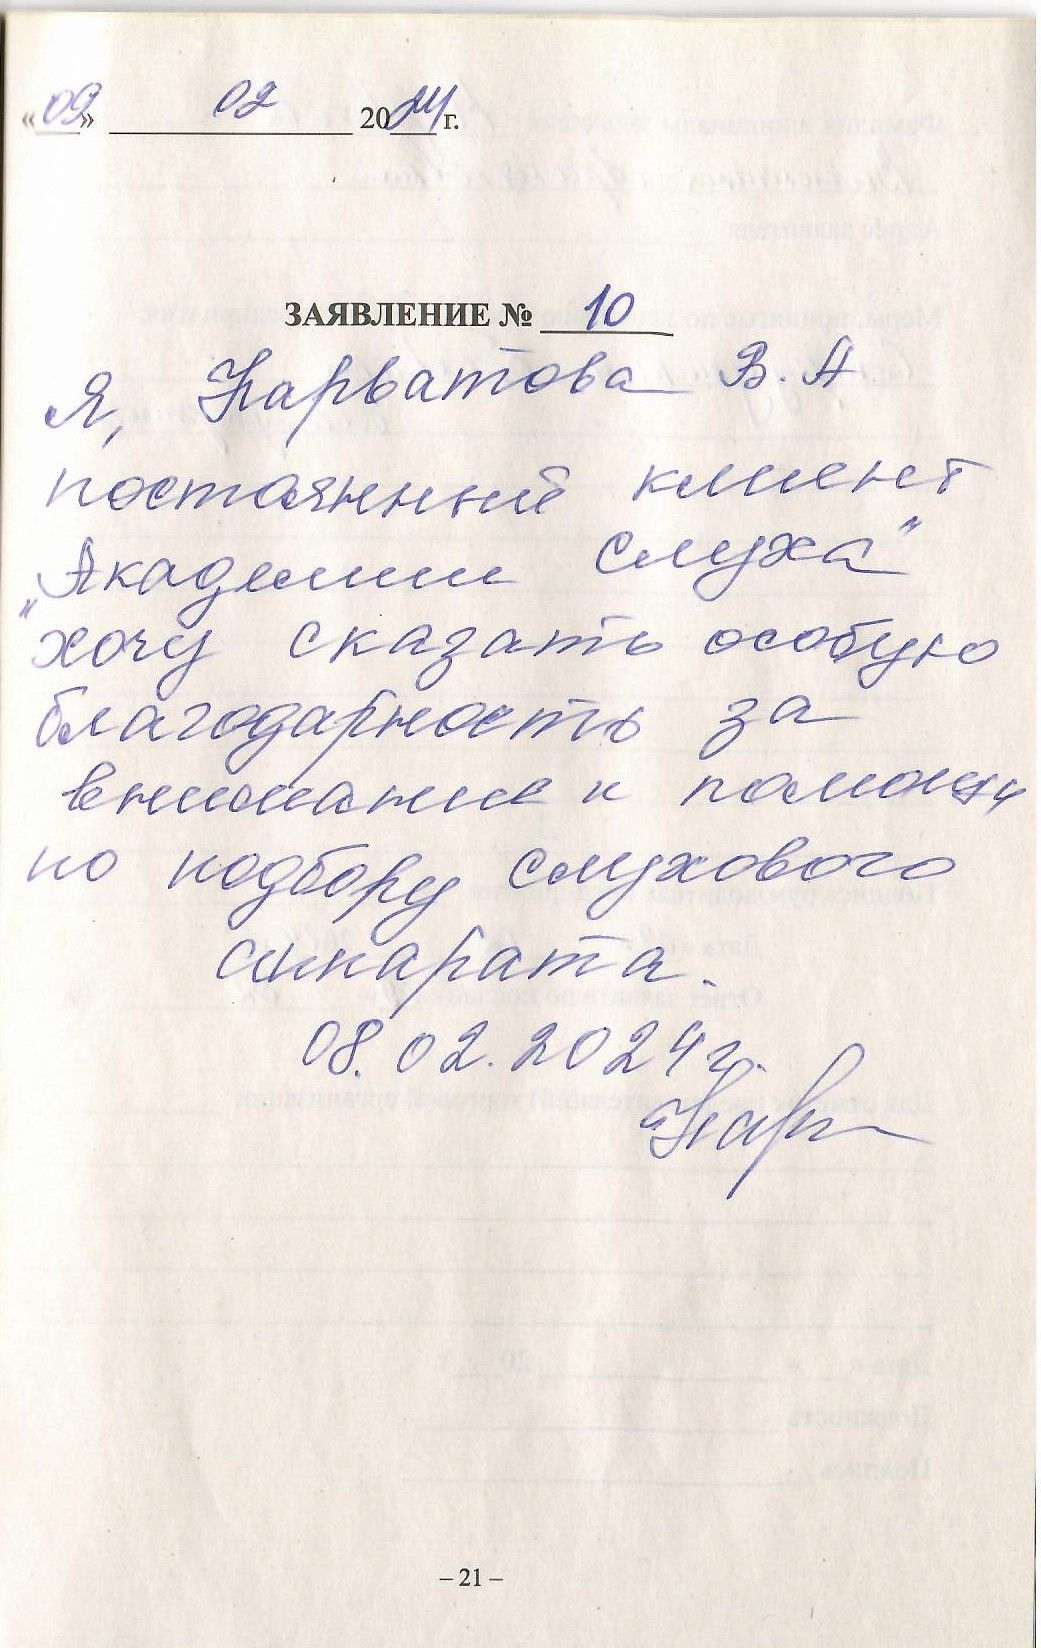 «09» 02 2024 г.
ЗАЯВЛЕНИЕ № 10
Я, Карватова В. А
постоянный клиент
"Академии слуха"
хочу сказать особую
благодарность за
внимание и помощь
по подбору слухового
аппарата.
08.02.2024г.
– 21 –